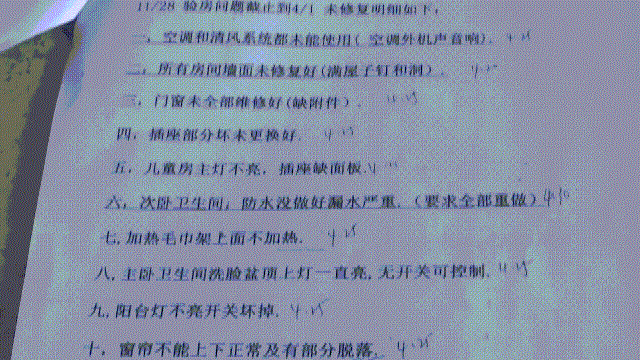 11/28 验房问题截止到4/1 未修复明细如下:
一, 空调和清风系统都未能使用( 空调外机声音响).
二, 所有房间墙面未修复好(满屋子钉和洞).
三, 门窗未全部维修好(缺附件).
四, 插座部分坏未更换好. 4.25
五, 儿童房主灯不亮, 插座缺面板.
六, 次卧卫生间, 防水没做好漏水严重. (要求全部重做)
七, 加热毛巾架上面不加热. 4.25
八, 主卧卫生间洗脸盆顶上灯一直亮, 无开关可控制. 4.25
九, 阳台灯不亮开关坏掉. 4.25
十, 窗帘不能上下正常及有部分脱落. 4.25